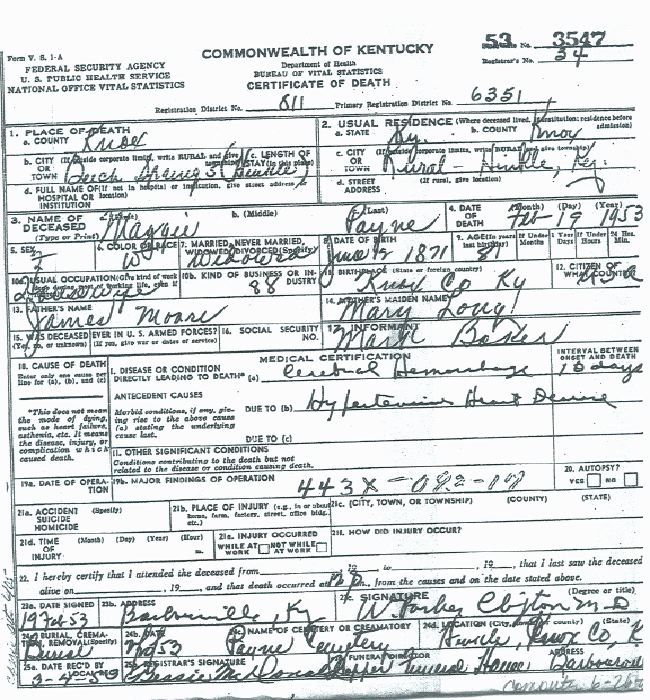 53 3547
34
Form V. S. 1-A
FEDERAL SECURITY AGENCY
U. S. PUBLIC HEALTH SERVICE
NATIONAL OFFICE VITAL STATISTICS
COMMONWEALTH OF KENTUCKY
Department of Health
BUREAU OF VITAL STATISTICS
CERTIFICATE OF DEATH
Registrar's No.
Registration District No. 811 Primary Registration District No. 6351
1. PLACE OF DEATH
a. COUNTY Knox
2. USUAL RESIDENCE (Where deceased lived. If institution: residence before admission)
a. STATE Ky. b. COUNTY Knox
b. CITY (If outside corporate limits, write RURAL and give township) OR TOWN
c. LENGTH OF STAY (in this place)
c. CITY (If outside corporate limits, write RURAL and give township) OR TOWN Rural - Hinkle, Ky.
d. FULL NAME OF (If not in hospital or institution, give street address or location) HOSPITAL OR INSTITUTION
d. STREET ADDRESS (If rural, give location)
3. NAME OF DECEASED (Type or Print)
Maggie b. (Middle) (Last) Payne
4. DATE OF DEATH (Month) (Day) (Year) Feb 19 1953
5. SEX F
6. COLOR OR RACE W
7. MARRIED, NEVER MARRIED, WIDOWED, DIVORCED (Specify) Widowed
8. DATE OF BIRTH June 15 1871
9. AGE (In years last birthday) 81 If Under 1 Year Months Days If Under 24 Hrs. Hours Min.
10a. USUAL OCCUPATION (Give kind of work Housewife
10b. KIND OF BUSINESS OR INDUSTRY 88
11. BIRTHPLACE (State or foreign country) Knox Co Ky
12. CITIZEN OF WHAT COUNTRY? USA
13. FATHER'S NAME James Moore
14. MOTHER'S MAIDEN NAME Mary Long
15. WAS DECEASED EVER IN U. S. ARMED FORCES? (Yes, no, or unknown) (If yes, give war or dates of service)
16. SOCIAL SECURITY NO.
17. INFORMANT Mark Baker
MEDICAL CERTIFICATION
INTERVAL BETWEEN ONSET AND DEATH
18. CAUSE OF DEATH
Enter only one cause per line for (a), (b), and (c)
I. DISEASE OR CONDITION DIRECTLY LEADING TO DEATH* (a) Cerebral Hemorrhage 10 days
*This does not mean the mode of dying, such as heart failure, asthenia, etc. It means the disease, injury, or complication which caused death.
ANTECEDENT CAUSES
Morbid conditions, if any, giving rise to the above cause (a) stating the underlying cause last.
DUE TO (b) Hypertensive Heart Disease
DUE TO (c)
II. OTHER SIGNIFICANT CONDITIONS
Conditions contributing to the death but not related to the disease or condition causing death.
19a. DATE OF OPERATION
19b. MAJOR FINDINGS OF OPERATION
443X-092-017
20. AUTOPSY?
YES NO
21a. ACCIDENT SUICIDE HOMICIDE (Specify)
21b. PLACE OF INJURY (e.g., in or about home, farm, factory, street, office bldg. etc.)
21c. (CITY, TOWN, OR TOWNSHIP) (COUNTY) (STATE)
21d. TIME OF INJURY (Month) (Day) (Year) (Hour) m.
21e. INJURY OCCURRED
WHILE AT WORK NOT WHILE AT WORK
21f. HOW DID INJURY OCCUR?
22. I hereby certify that I attended the deceased from 19 to 19 , that I last saw the deceased
alive on , 19 , and that death occurred at m., from the causes and on the date stated above.
23a. DATE SIGNED 19 Feb 53
23b. ADDRESS Barbourville, Ky
23c. SIGNATURE (Degree or title) Clifton M D
24a. BURIAL, CREMATION, REMOVAL (Specify) Burial
24b. DATE
24c. NAME OF CEMETERY OR CREMATORY Payne Cemetery
24d. LOCATION (City, (State) Hinkle, Knox Co, K
25a. DATE REC'D BY LOCAL REG. 3-4
25b. REGISTRAR'S SIGNATURE Bessie McDonald
FUNERAL DIRECTOR Funeral Home
ADDRESS